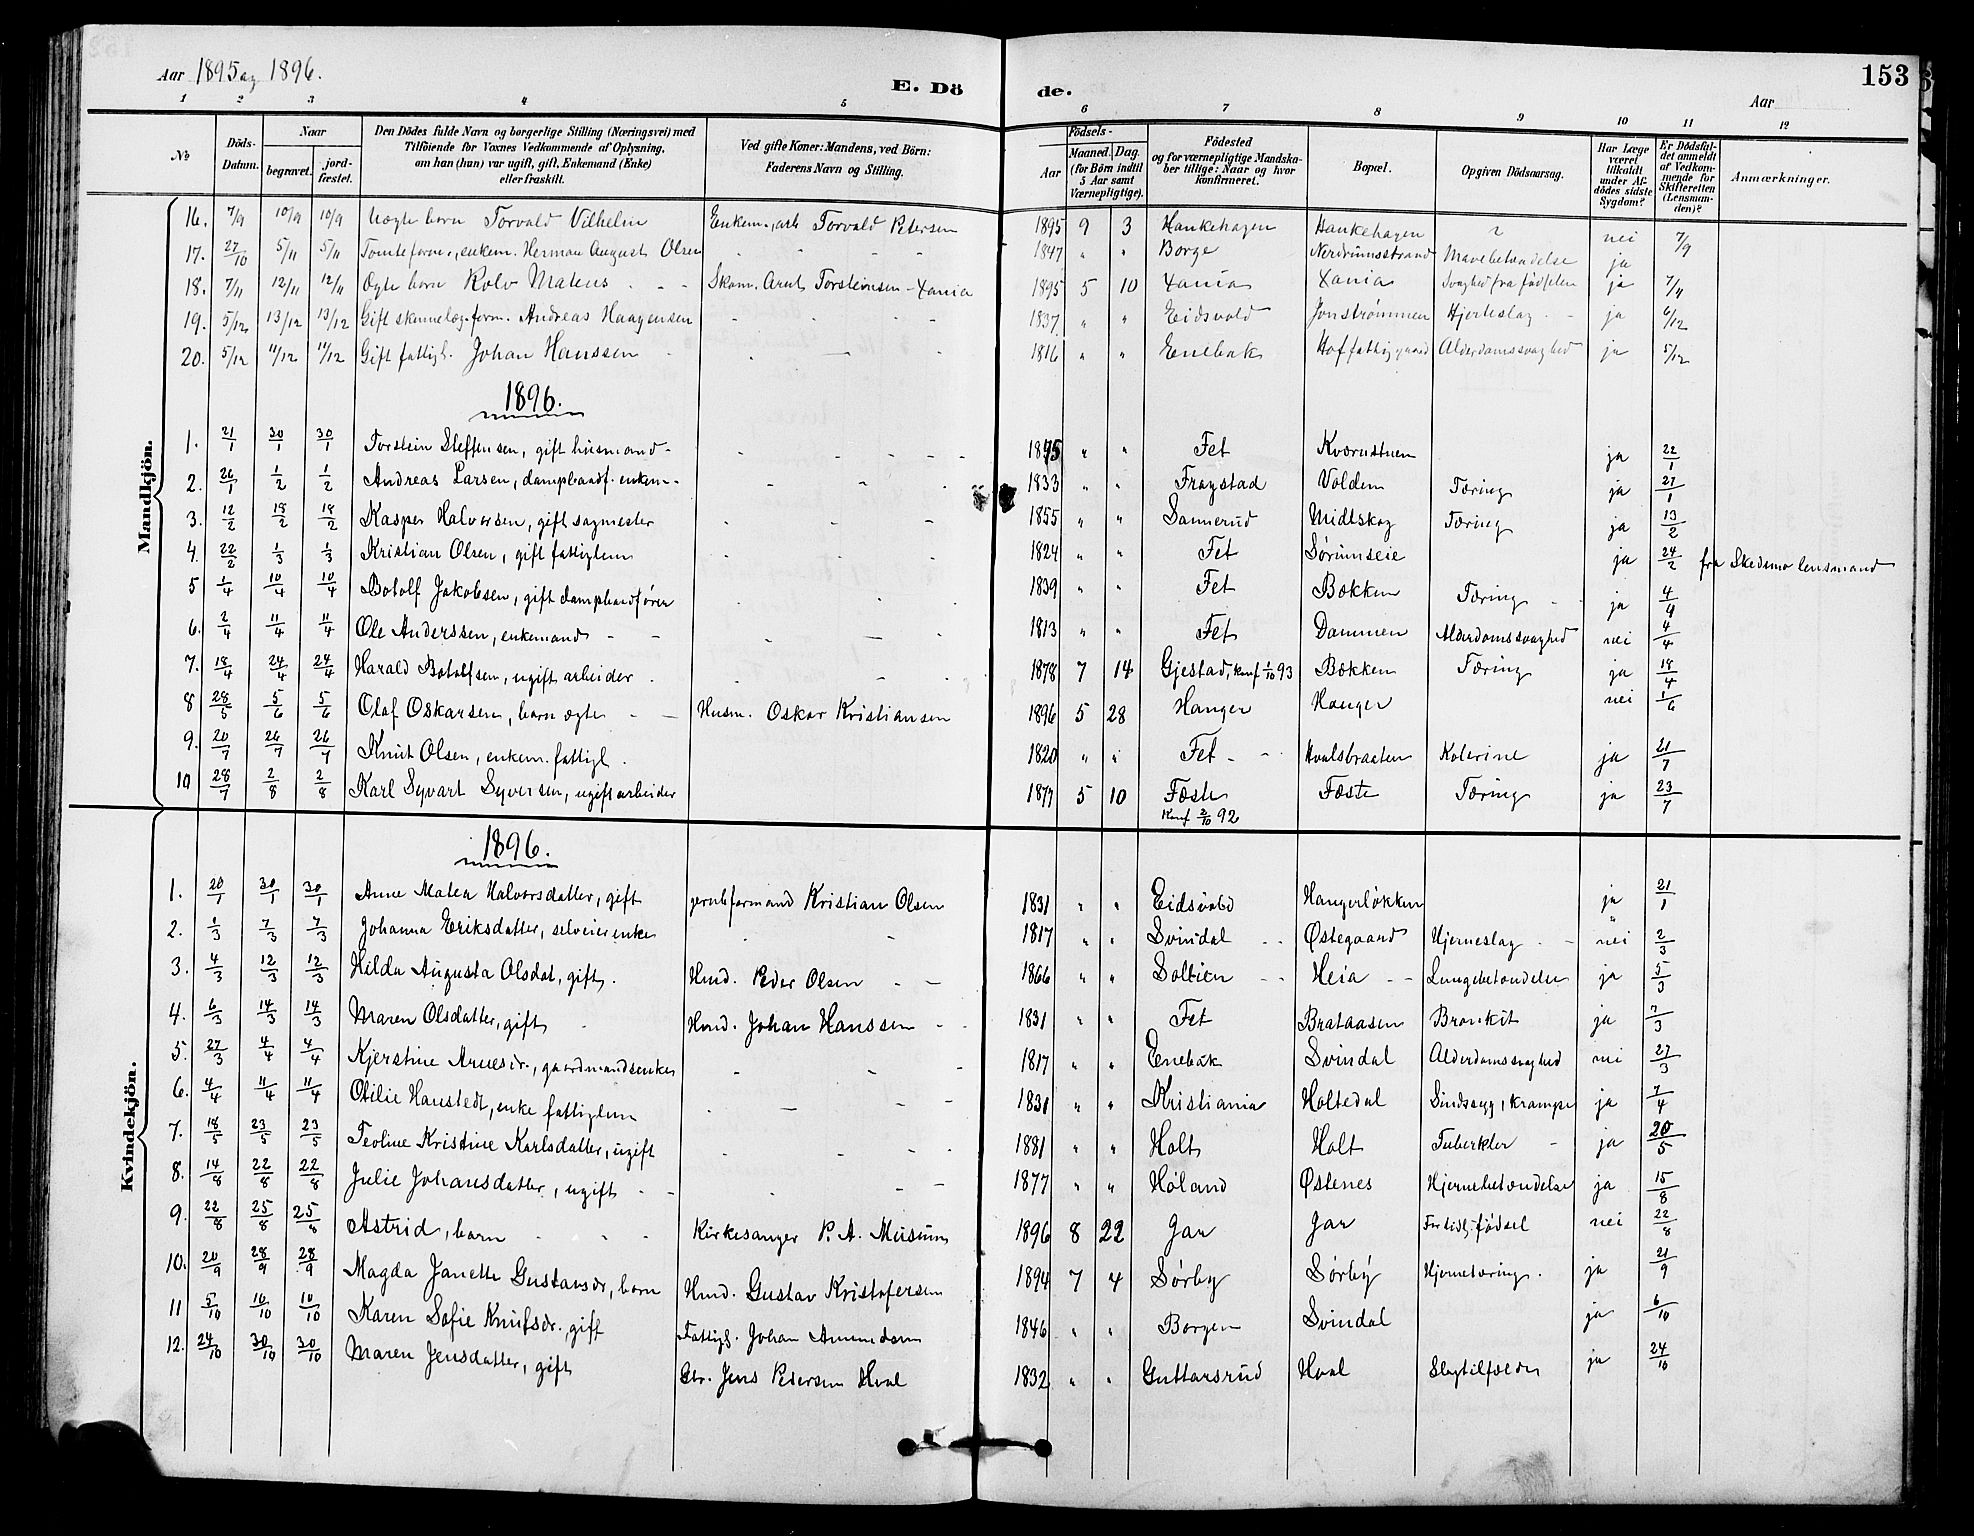 Aar 1895 og 1896.
E. Dö
de.
Aar
153
1 2 3 4 5 6 7 8 9 10 11 12
No
Döds-Datum.
Naar
begravet.
jord-fæstet.
Den Dödes fulde Navn og borgerlige Stilling (Næringsvei) med
Tilföiende for Voxnes Vedkommende af Oplysning,
om han (hun) var ugift, gift, Enkemand (Enke)
eller fraskilt.
Ved gifte Koner: Mandens, ved Börn:
Faderens Navn og Stilling.
Födsels-
Aar
Maaned. Dag.
(for Börn indtil
5 Aar samt
Værnepligtige).
Födested
og for værnepligtige Mandska-
ber tillige: Naar og hvor
konfirmeret.
Bopæl.
Opgiven Dödsaarsag.
Har Læge
været
tilkaldt
under Af-
dödes sidste
Sygdom?
Er Dödsfal-
det anmeldt
af Vedkom-
mende for
Skifteretten
(Lensman-
den)?
Anmærkninger.
Mandkjön.
16. 7/9 10/9 10/9 Uægte barn Torvald Vilhelm Enkem., arb Torvald Petersen 1895 9 3 Hankehagen Hankehagen nei 7/9
17. 27/10 5/11 5/11 Tomteform., enkem. Herman August Olsen 1847 " " Borge Nordrumsstrand Mavebetændelse ja
18. 7/11 12/11 12/11 Ægte barn Rolv Mateus Skom. Arnt Torsteinsen - Xania 1895 5 10 Xania Xania Svaghed fra fødselen ja 7/11
19. 5/12 13/12 13/12 Gift skinnelægform. Andreas Haagensen 1837 " " Eidsvold Jonstrømmen Hjerteslag ja 6/12
20. 5/12 11/12 11/12 Gift fattigl. Johan Hanssen 1816 " " Enebak Hof fattiggaard Alderdomssvaghed ja 5/12
1896.
1. 21/1 30/1 30/1 Torstein Steffensen, gift husmand 1895 " " Fet Kværnstuen ja 22/1
2. 26/1 1/2 1/2 Andreas Larsen, dampbaadf. enkem. 1833 " " Frogstad Volden Tæring ja 27/1
3. 12/2 18/2 18/2 Kasper Halvorsen, gift sagmester 1855 " " Sannerud Midtskog Tæring ja 13/2
4. 22/2 1/3 1/3 Kristian Olsen, gift fattiglem 1824 " " Fet Sørumseie ja 24/2 fra Skedsmo lensmand
5 1/4 10/4 10/4 Botolf Jakobsen, gift dampbaadfører 1839 " " Fet Bækken Tæring ja 4/4
6. 2/4 11/4 11/4 Ole Anderssen, enkemand 1813 " " Fet Dammen Alderdomssvaghed nei 4/4
7. 18/4 24/4 24/4 Harald Botolfsen, ugift arbeider 1878 7 14 Gjestad, konf 1/10 93 Bækken Tæring ja 18/4
8 28/5 5/6 5/6 Olaf Oskarsen, barn ægte Husm. Oskar Kristiansen 1896 5 28 Hanger Hanger nei 1/6
9. 20/7 26/7 26/7 Knut Olsen, enkem. fattigl. 1820 " " Fet Hvalsbraaten Kolerine ja 21/7
10 28/7 2/8 2/8 Karl Syvart Syversen, ugift arbeider 1877 5 10 Fæste Fæste Tæring ja 23/7
Konf 2/10 92
Kvindekjön.
1896.
1. 20/1 30/1 30/1 Anne Matea Halvorsdatter, gift jernbformand Kristian Olsen 1831 " " Eidsvold Hangerløkken ja 21/1
2. 1/3 7/3 7/3 Johanna Eriksdatter, selveierenke 1817 " " Svindal Østegaard Hjerneslag nei 2/3
3. 4/3 12/3 12/3 Hilda Augusta Olsdat, gift. Hmd. Peder Olsen 1866 " " Soltien Heia Lungebetændelse ja 5/3
4. 6/3 14/3 14/3 Maren Olsdatter, gift Hmd. Johan Hanssen 1831 " " Fet Brataasen Bronkit ja 7/3
5. 27/3 4/4 4/4 Kjerstine Arnesdr., gaardmandsenke 1817 " " Enebak Svindal Alderdomssvaghed nei 27/3
6. 4/4 11/4 11/4 Otilie Hanstedt, enke fattiglem 1831 " " Kristiania Holtedal Sindssyg, krampe ja 7/4
7. 18/5 23/5 23/5 Teoline Kristine Karlsdatter, ugift 1881 " " Holt Holt Tuberkler ja 20/5
8. 14/8 22/8 22/8 Julie Johansdatter, ugift 1877 " " Høland Østenes Hjernebetændelse ja 15/8
9. 22/8 25/8 25/8 Astrid, barn Kirkesanger P. A. Musum 1896 8 22 Jar Jar For tidl. fødsel nei 22/8
10. 20/9 28/9 28/9 Magda Janette Gustavsdr, barn Hmd. Gustav Kristofersen 1894 7 4 Sørby Sørby Hjernetæring. ja 21/9
11 5/10 10/10 10/10 Karen Sofie Knutsdr., gift Fattigl. Johan Amundsen 1846 " " Borgen Svindal ja 6/10
12. 24/10 30/10 30/10 Maren Jensdatter, gift Gbr. Jens Pedersen Hval 1832 " " Guttorsrud Hval Slagtilfælde ja 24/10